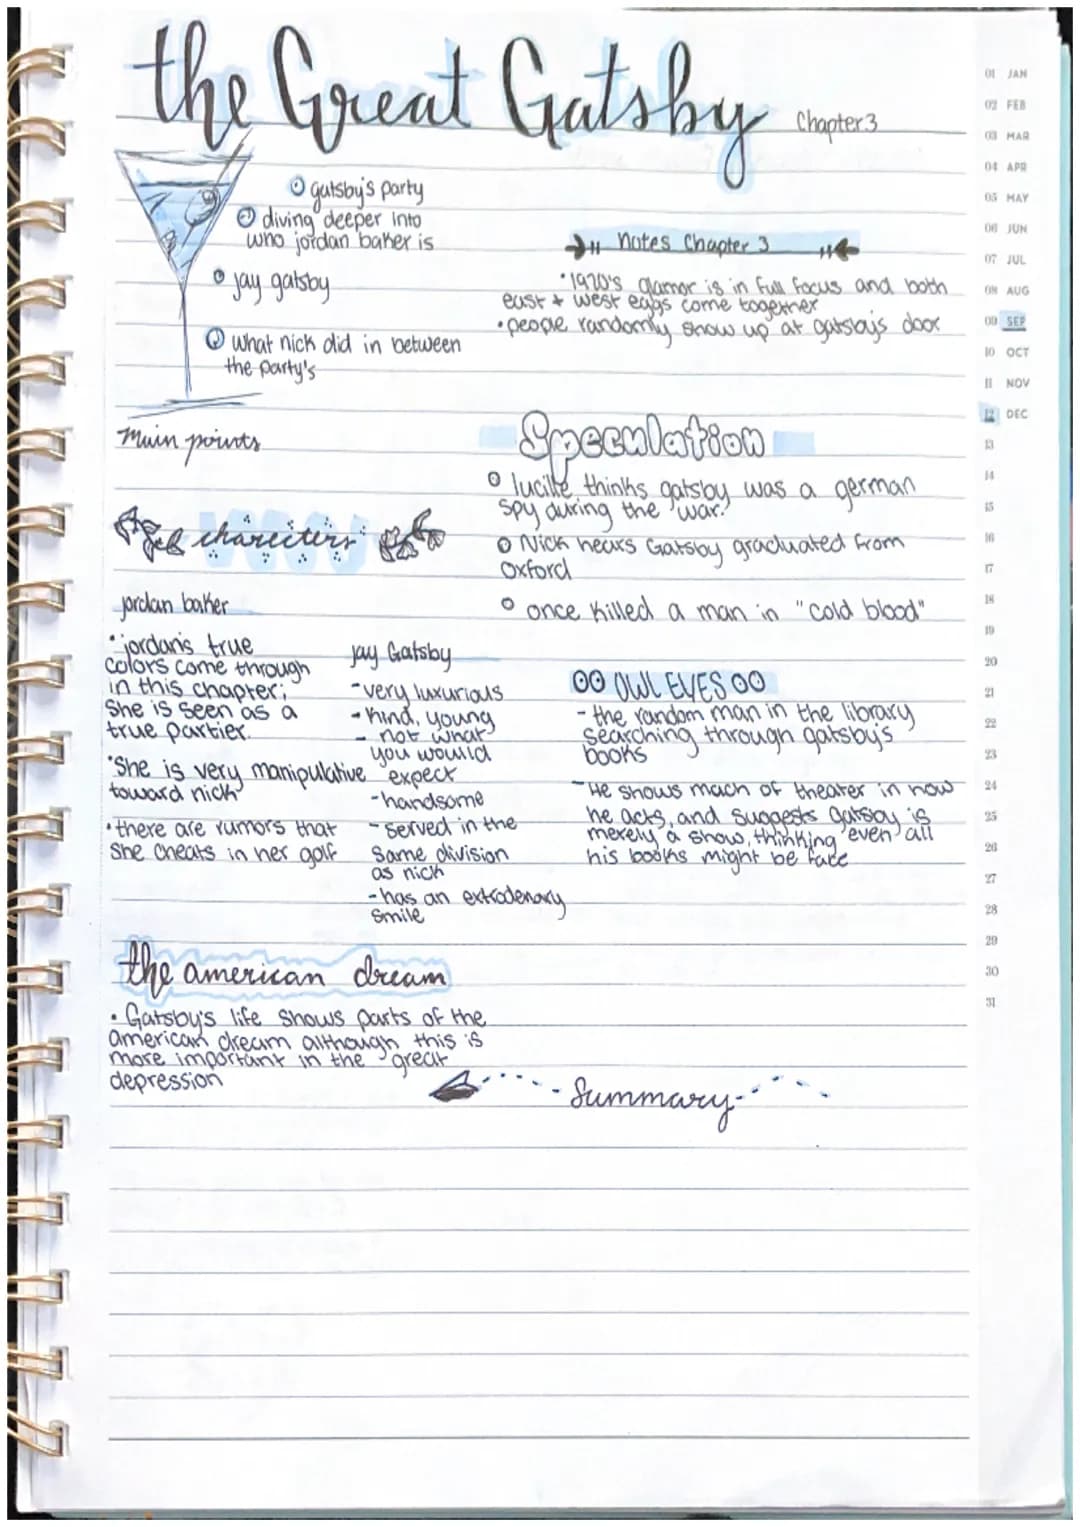 the Great Gatsby
Chapter 3
gatsby's party
diving deeper into
who jordan baker is
jay gatsby
what nick did in between
the party's
Main points
notes Chapter 3
• 1920's glamor is in full focus and both
east + west eggs come together
• people randomly show up at gatsby's door
Speculation
lucille thinks gatsby was a german
spy during the war.
Nick hears Gatsby graduated from
Oxford
once killed a man in "cold blood"
charecters
jordan baker
• jordan's true
colors come through
in this chapter;
She is seen as a
true partier.
• She is very manipulative
toward nick
• there are rumors that
she cheats in her golf
jay Gatsby
- very luxurious
- kind, young
- not what
you would
expect
- handsome
- served in the
same division
as nick
- has an extrodenary
smile
OWL EYES
- the random man in the library
searching through gatsby's
books
- He shows mach of theater in how
he acts, and suggests Gatsby is
merely a show, thinking even all
his books might be face
the american dream
• Gatsby's life shows parts of the
american dream although this is
more important in the great
depression
Summary
01 JAN
02 FEB
03 MAR
04 APR
05 MAY
06 JUN
07 JUL
08 AUG
09 SEP
10 OCT
11 NOV
12 DEC
13
14
15
16
17
18
19
20
21
22
23
24
25
26
27
28
29
30
31